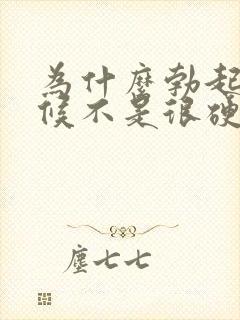 為什麼勃起
候不是很硬
塵七七